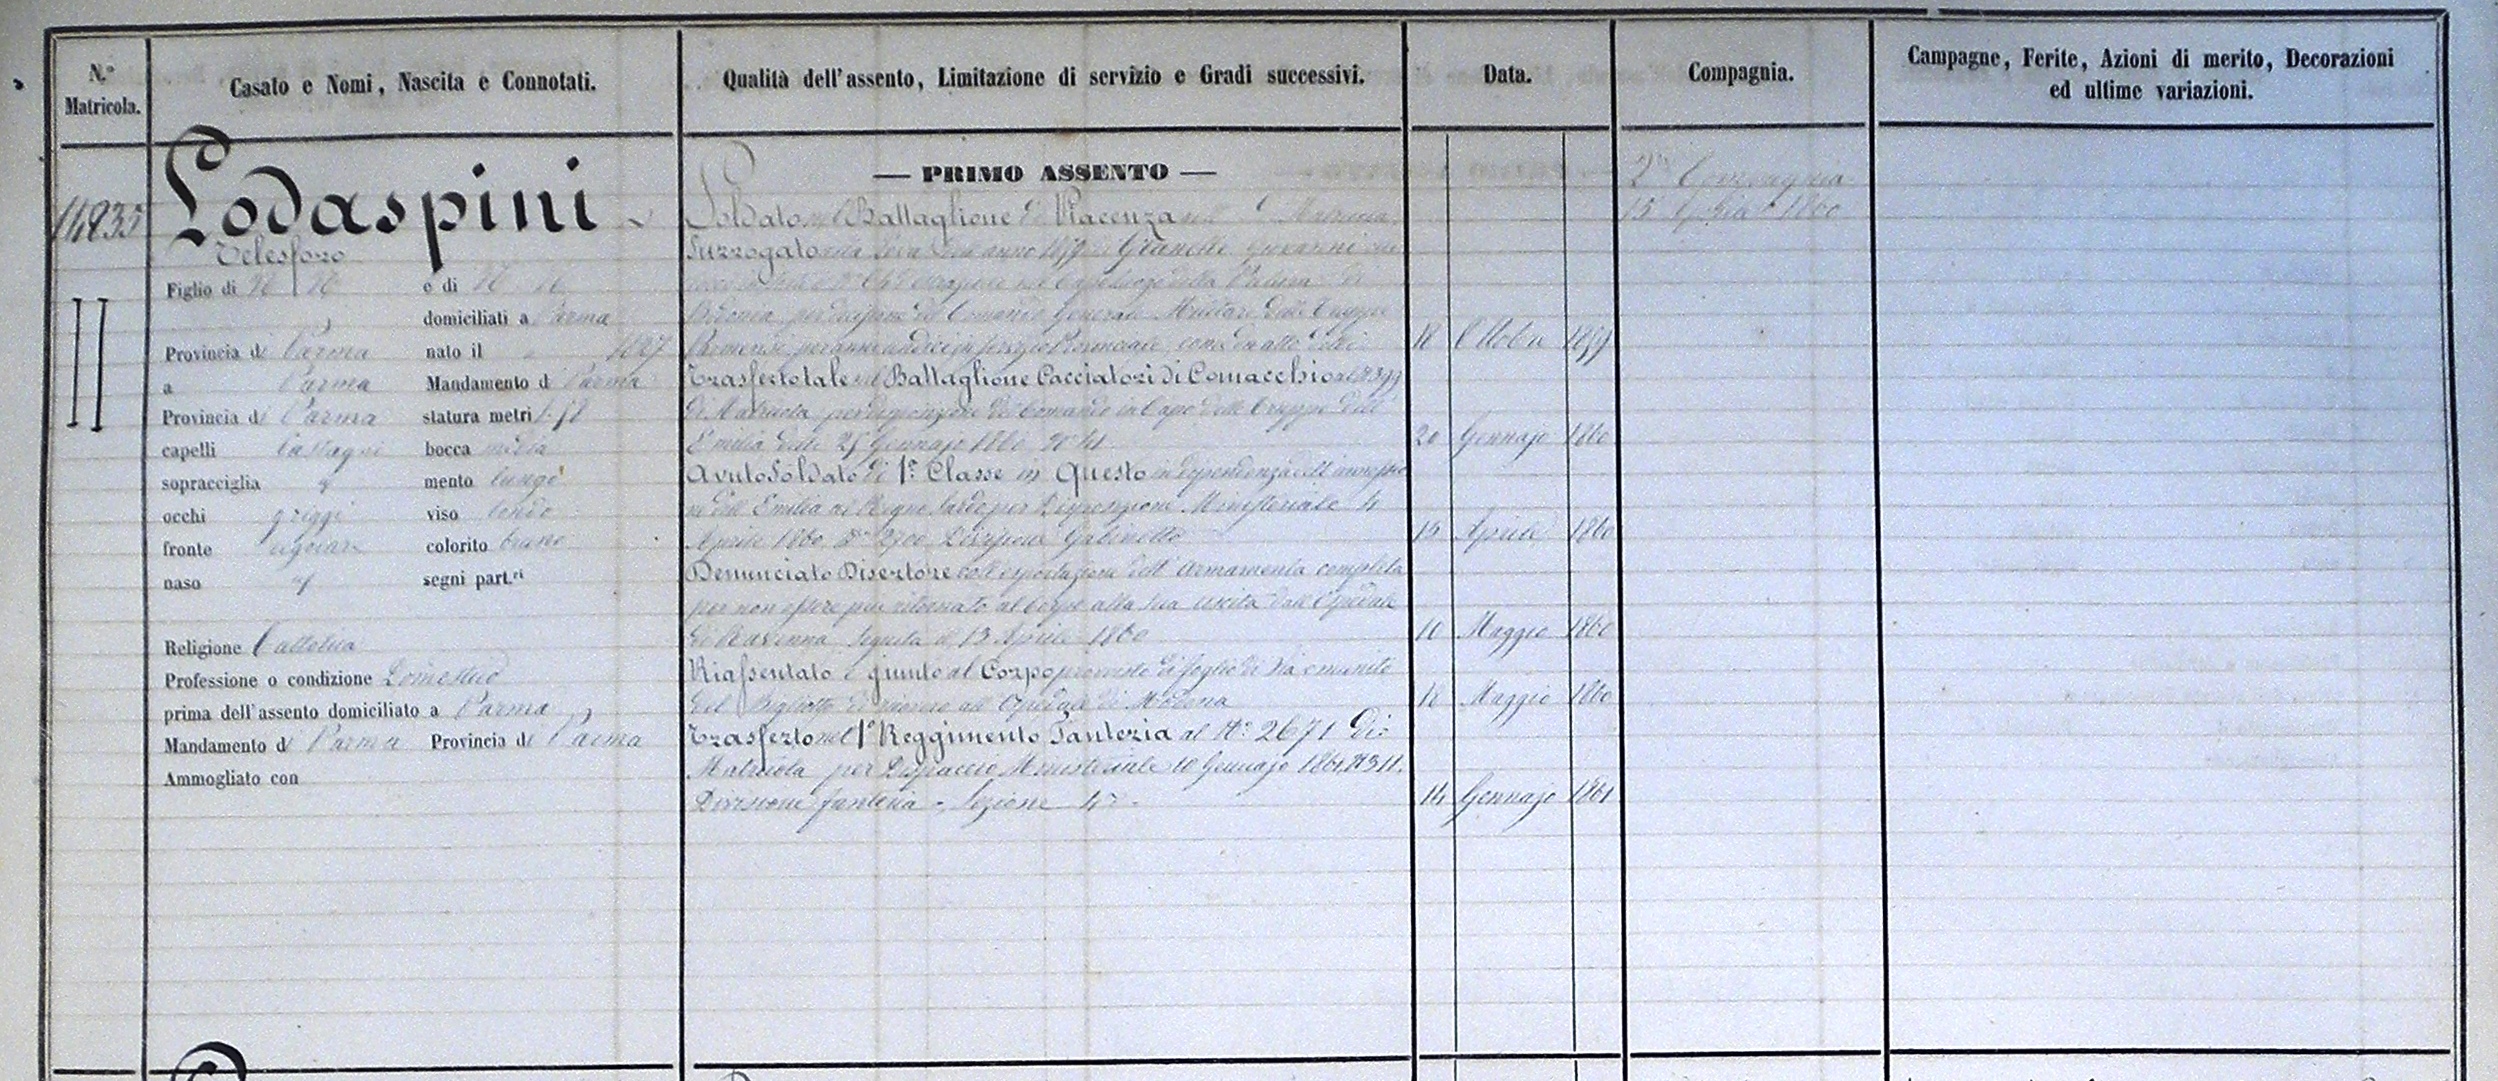 N.º Matricola.
Casato e Nomi, Nascita e Connotati.
Qualità dell'assento, Limitazione di servizio e Gradi successivi.
Data.
Compagnia.
Campagne, Ferite, Azioni di merito, Decorazioni
ed ultime variazioni.
14835
Lodaspini
Telesforo
Figlio di N N e di N N
domiciliati a Parma
Provincia di Parma nato il 1827
a Parma Mandamento di Parma
Provincia di Parma statura metri
capelli Castagni bocca media
sopracciglia mento lungo
occhi griggi viso tondo
fronte regolare colorito bruno
naso segni part.ri
Religione Cattolica
Professione o condizione Domestico
prima dell'assento domiciliato a Parma
Mandamento di Parma Provincia di Parma
Ammogliato con
— PRIMO ASSENTO —
Soldato nel Battaglione di Piacenza Matricola
Surrogato nella leva dell'anno 1859 di Granelli Giovanni
per decisione del Comando Generale Militare delle Truppe
Parmensi per anni undici in servizio Provinciale 18 Ottobre 1859
Trasferto tale nel Battaglione Cacciatori di Comacchio al N 399
di Matricola per disposizione del Comando in Capo delle Truppe dell'
Emilia delli 25 Gennajo 1860 Nº 41 20 Gennajo 1860
Avuto Soldato di 1ª Classe in Questo in dipendenza dell'
dell'Emilia al Regno Sardo per Disposizione Ministeriale 4
Aprile 1860 Nº 2700 Divisione Gabinetto 15 Aprile 1860
Denunciato Disertore coll'esportazione dell'armamento completo
per non essere più ritornato al Corpo alla sua uscita dall'Ospedale
di Ravenna seguita il 13 Aprile 1860 10 Maggio 1860
Riassentato e giunto al Corpo provvisto di foglio di Via e munito
del Biglietto di all'Ospedale di Modena 18 Maggio 1860
Trasferto nel 1º Reggimento Fanteria al Nº 2671 di
Matricola per Dispaccio Ministeriale 10 Gennajo 1861, Nº 311.
Divisione fanteria - Sezione 4ª 14 Gennajo 1861
2ª Compagnia
15 Aprile 1860